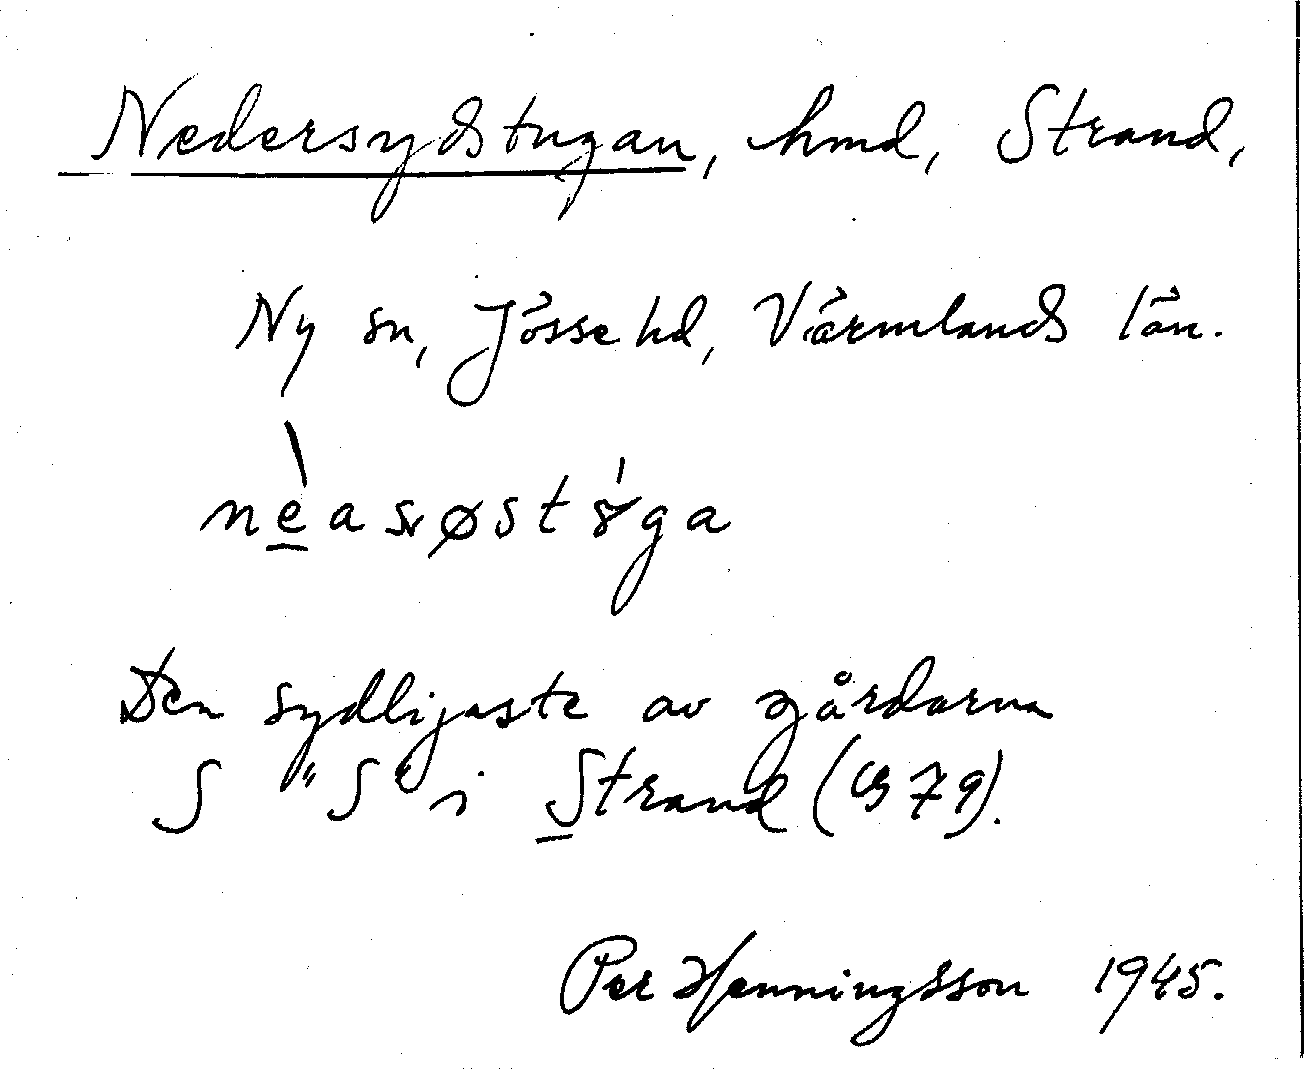 Nedersydstugan, hmd, Strand,
Ny sn, Jösse hd, Värmlands län.
nèasøstóga
Den sydligaste av gårdarna
S "S" i Strand (GS 79).
Per Henningsson 1945.